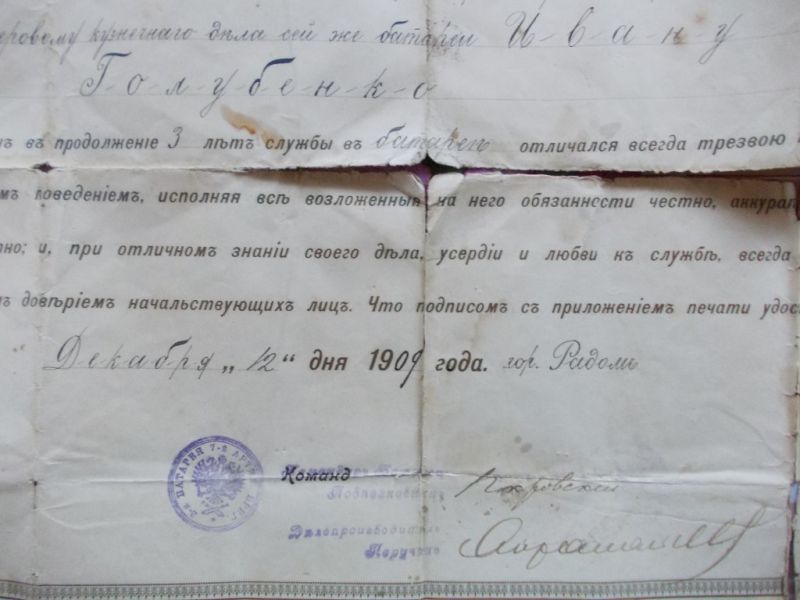 еровому кузнечнаго дѣла сей же батареи И-в-а-н-у
Г-о-л-у-б-е-н-к-о
въ продолженіе 3 лѣтъ службы въ батареѣ отличался всегда трезвою
мъ поведеніемъ, исполняя всѣ возложенныя на него обязанности честно, аккурат
тно; и, при отличномъ знаніи своего дѣла, усердіи и любви къ службѣ, всегда
ъ довѣріемъ начальствующихъ лицъ. Что подписомъ съ приложеніемъ печати удос
Декабря „12“ дня 1909 года. гор. Радомъ
БАТАРИЯ 7-й АРТ.
Команд
Подполковникъ
Дѣлопроизводитель
Поручикъ